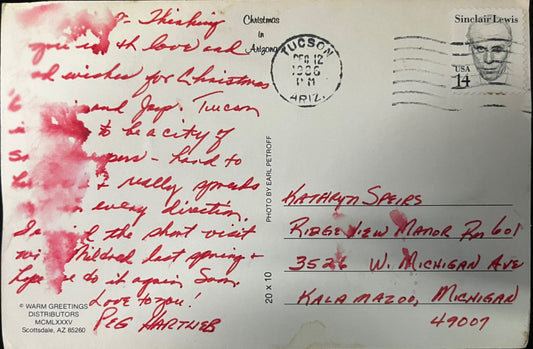 Thinking
you with love and
wishes for Christmas
and Tucson
to be a city of
hard to
& really spreads
every direction.
the short visit
Mildred last spring +
hope to do it again Soon.
Love to you!
Peg Hartlieb
© WARM GREETINGS
DISTRIBUTORS
MCMLXXXV
Scottsdale, AZ 85260
Christmas
in
Arizona
PHOTO BY EARL PETROFF
20 x 10
TUCSON
DEC 12
1986
PM
ARIZ.
Sinclair Lewis
USA
14
KATHRYN SPEIRS
RIDGE VIEW MANOR RM 601
3526 W. MICHIGAN AVE
KALAMAZOO, MICHIGAN
49007